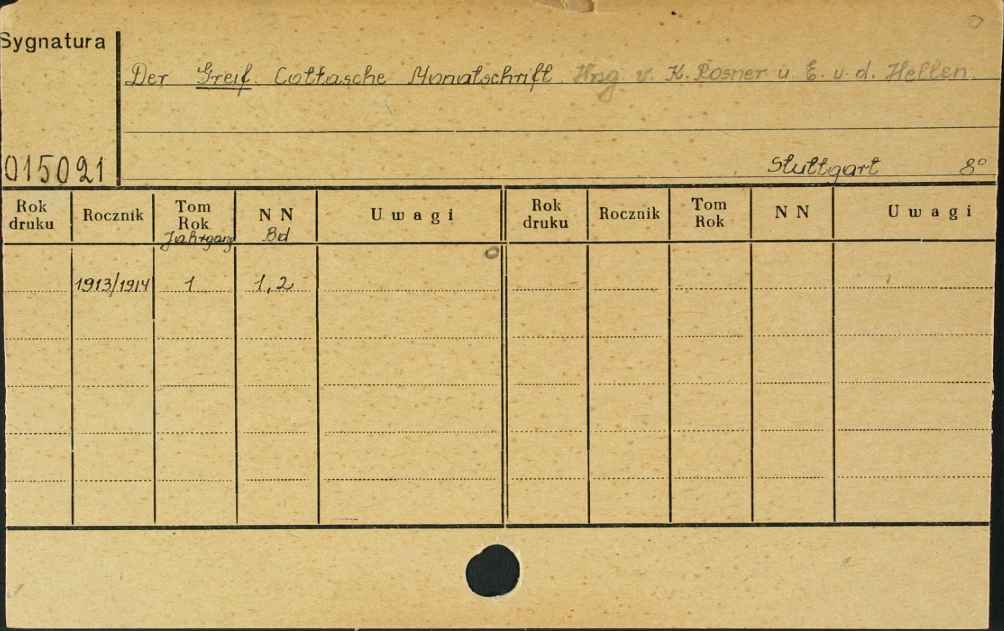 Sygnatura
Der Greif. Cottasche Monatschrift. Hng. v. K. Rosner u E. v. d. Hellen.
015021
Stuttgart 8°
Rok druku Rocznik Tom Rok Jahrgang NN Bd Uwagi Rok druku Rocznik Tom Rok NN Uwagi
1913/1914 1 1,2